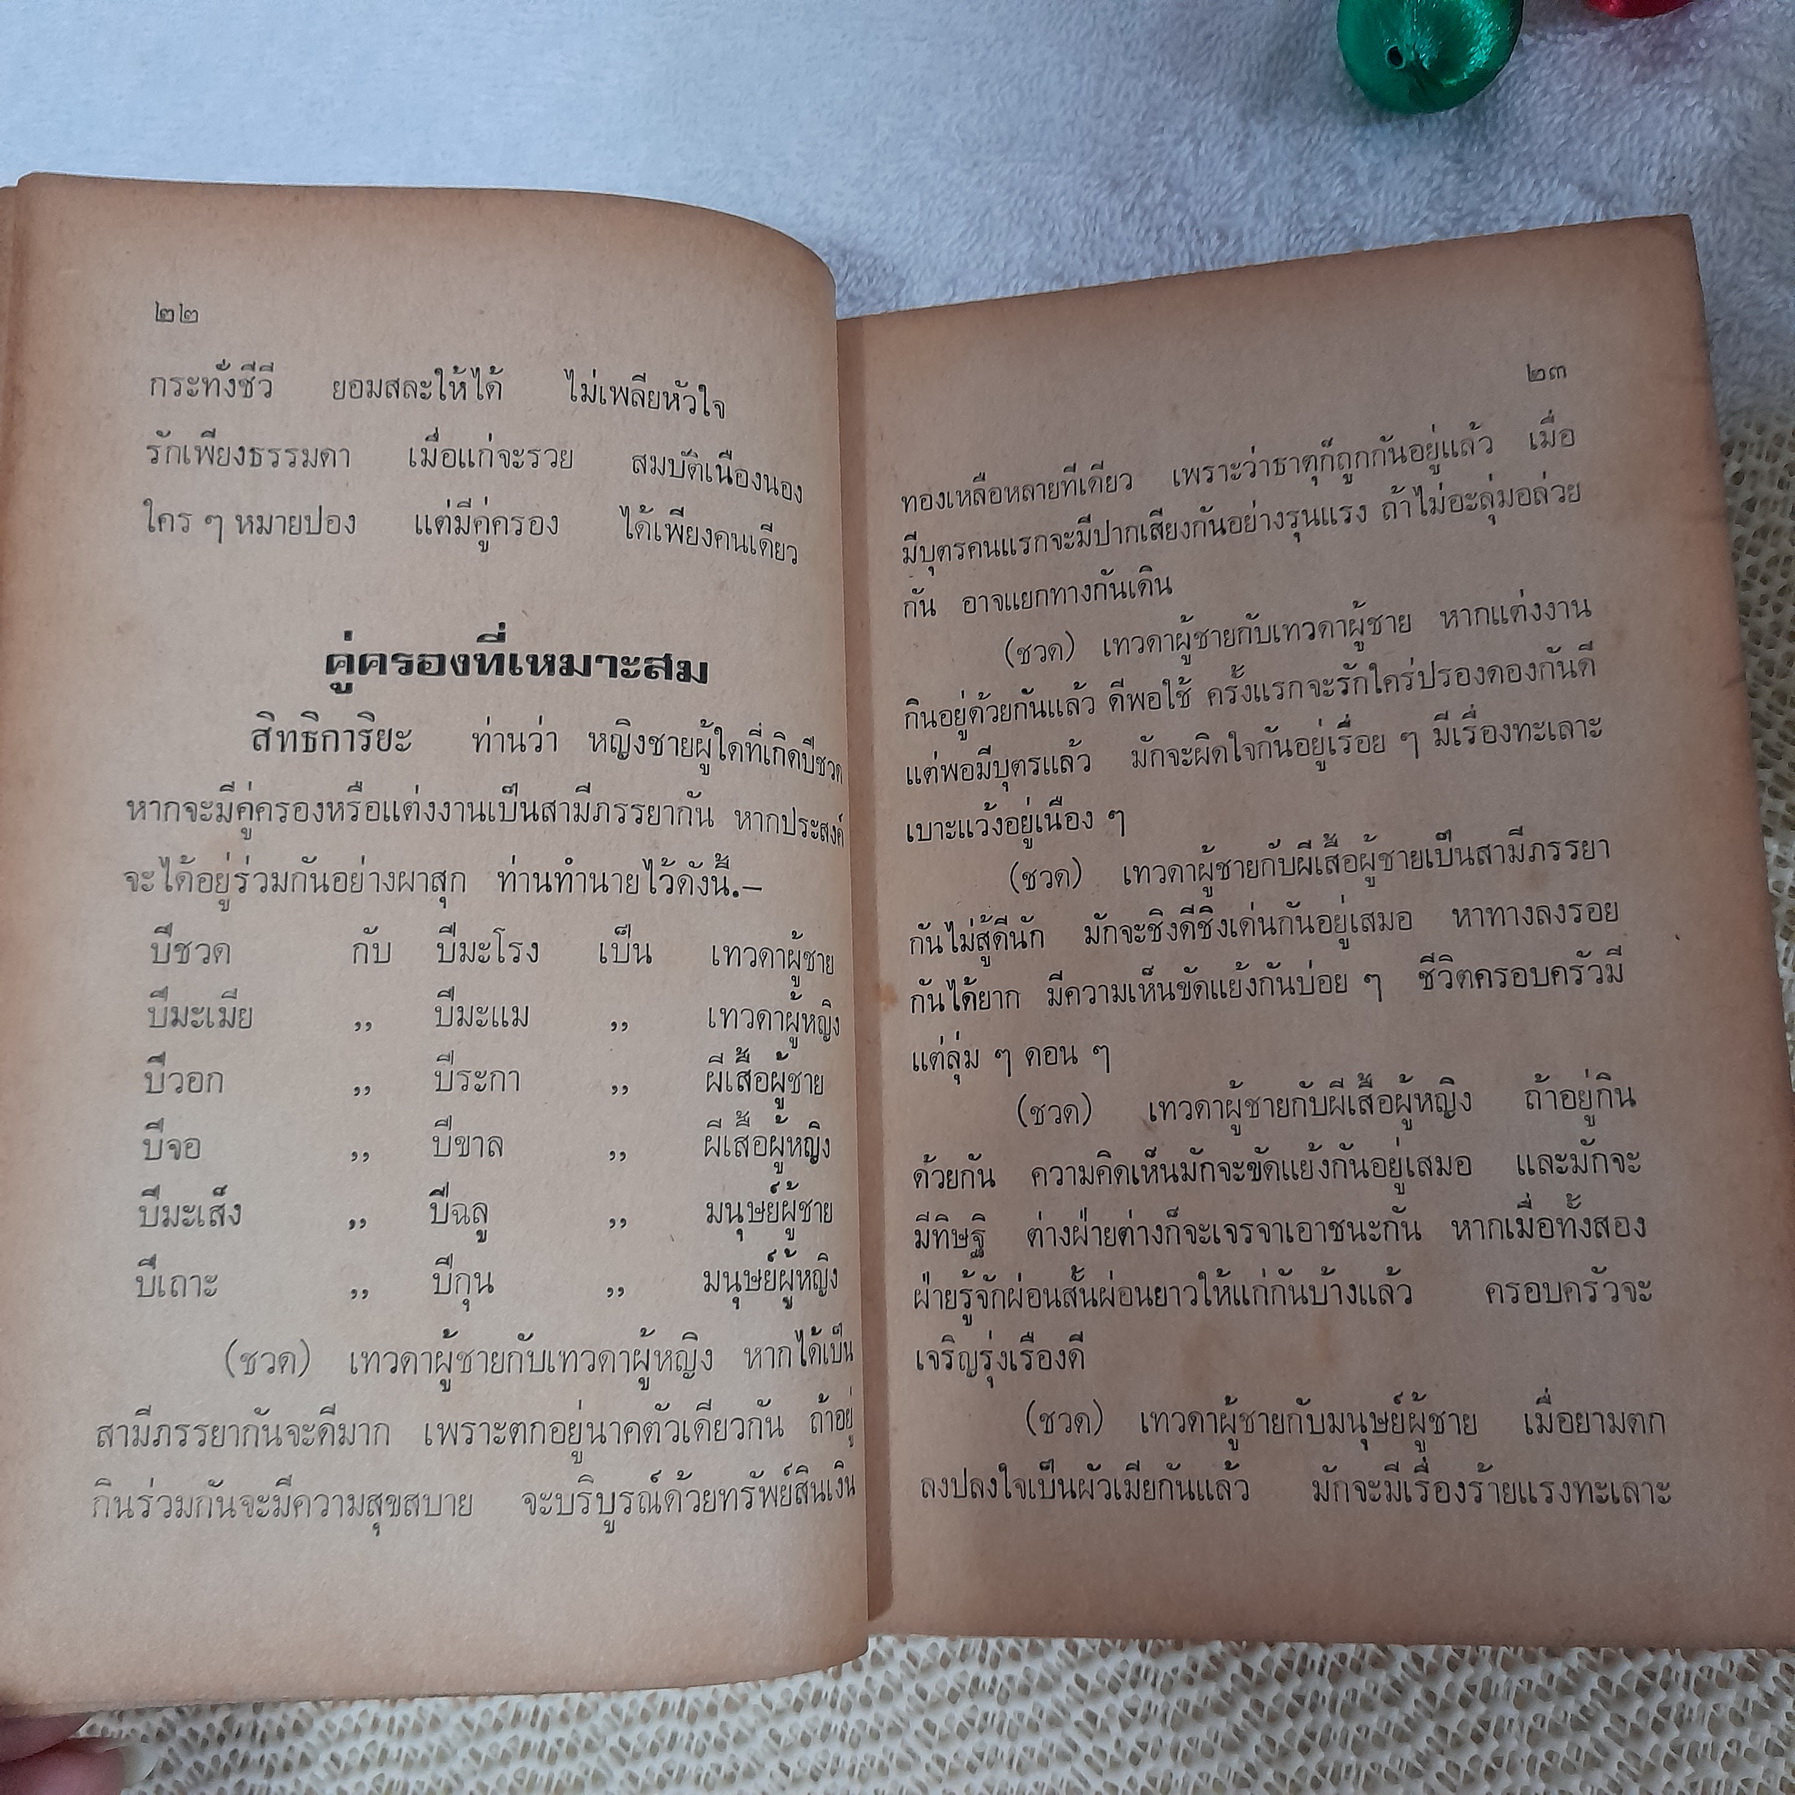 ๒๒
กระทั่งชีวี ยอมสละให้ได้ ไม่เพลียหัวใจ
รักเพียงธรรมดา เมื่อแก่จะรวย สมบัติเนืองนอง
ใคร ๆ หมายปอง แต่มีคู่ครอง ได้เพียงคนเดียว
คู่ครองที่เหมาะสม
สิทธิการิยะ ท่านว่า หญิงชายผู้ใดที่เกิดปีชวด
หากจะมีคู่ครองหรือแต่งงานเป็นสามีภรรยากัน หากประสงค์
จะได้อยู่ร่วมกันอย่างผาสุก ท่านทำนายไว้ดังนี้.—
ปีชวด กับ ปีมะโรง เป็น เทวดาผู้ชาย
ปีมะเมีย ,, ปีมะแม ,, เทวดาผู้หญิง
ปีวอก ,, ปีระกา ,, ผีเสื้อผู้ชาย
ปีจอ ,, ปีขาล ,, ผีเสื้อผู้หญิง
ปีมะเส็ง ,, ปีฉลู ,, มนุษย์ผู้ชาย
ปีเถาะ ,, ปีกุน ,, มนุษย์ผู้หญิง
(ชวด) เทวดาผู้ชายกับเทวดาผู้หญิง หากได้เป็น
สามีภรรยากันจะดีมาก เพราะตกอยู่นาคตัวเดียวกัน ถ้าอยู่
กินร่วมกันจะมีความสุขสบาย จะบริบูรณ์ด้วยทรัพย์สินเงิน
๒๓
ทองเหลือหลายทีเดียว เพราะว่าธาตุก็ถูกกันอยู่แล้ว เมื่อ
มีบุตรคนแรกจะมีปากเสียงกันอย่างรุนแรง ถ้าไม่อะลุ่มอล่วย
กัน อาจแยกทางกันเดิน
(ชวด) เทวดาผู้ชายกับเทวดาผู้ชาย หากแต่งงาน
กินอยู่ด้วยกันแล้ว ดีพอใช้ ครั้งแรกจะรักใคร่ปรองดองกันดี
แต่พอมีบุตรแล้ว มักจะผิดใจกันอยู่เรื่อย ๆ มีเรื่องทะเลาะ
เบาะแว้งอยู่เนือง ๆ
(ชวด) เทวดาผู้ชายกับผีเสื้อผู้ชายเป็นสามีภรรยา
กันไม่สู้ดีนัก มักจะชิงดีชิงเด่นกันอยู่เสมอ หาทางลงรอย
กันได้ยาก มีความเห็นขัดแย้งกันบ่อย ๆ ชีวิตครอบครัวมี
แต่ลุ่ม ๆ ดอน ๆ
(ชวด) เทวดาผู้ชายกับผีเสื้อผู้หญิง ถ้าอยู่กิน
ด้วยกัน ความคิดเห็นมักจะขัดแย้งกันอยู่เสมอ และมักจะ
มีทิษฐิ ต่างฝ่ายต่างก็จะเจรจาเอาชนะกัน หากเมื่อทั้งสอง
ฝ่ายรู้จักผ่อนสั้นผ่อนยาวให้แก่กันบ้างแล้ว ครอบครัวจะ
เจริญรุ่งเรืองดี
(ชวด) เทวดาผู้ชายกับมนุษย์ผู้ชาย เมื่อยามตก
ลงปลงใจเป็นผัวเมียกันแล้ว มักจะมีเรื่องร้ายแรงทะเลาะ